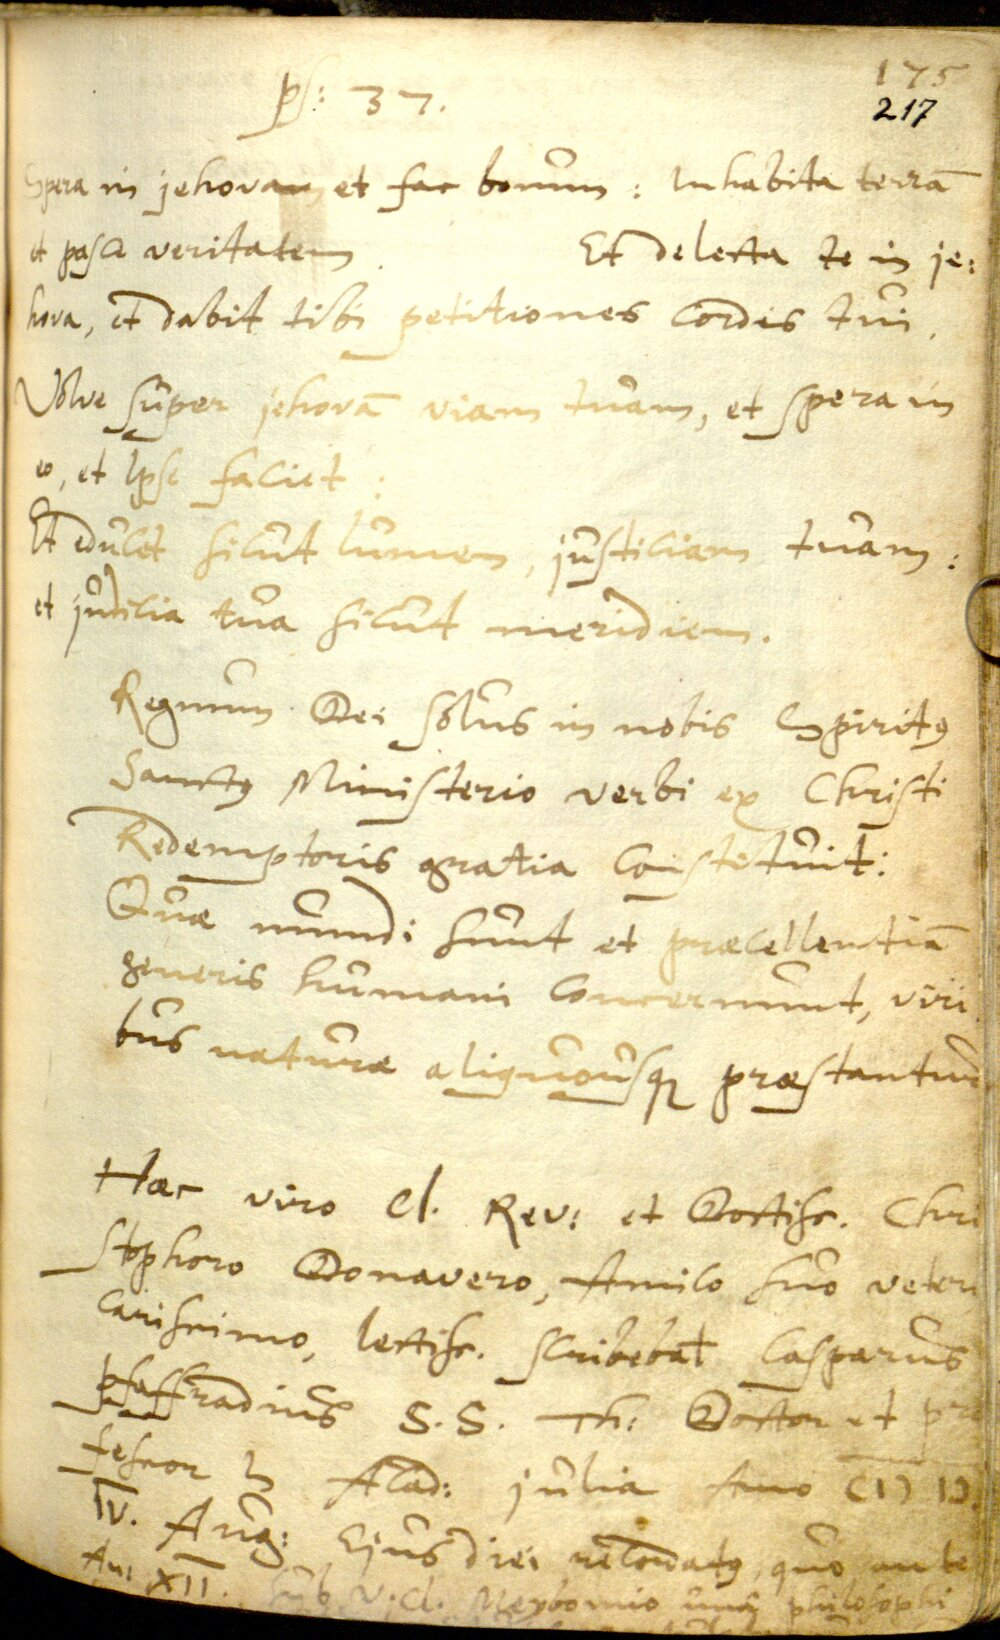 175
ps: 37.
217
Spera in jehovam et fac bonum : Inhabita terrā
et pasce veritatem. Et delecta te in je:
hova, et dabit tibi petitiones cordis tui,
Volve super jehovā viam tuam, et spera in
eo, et Ipse faciet :
Et educet sicut lumen, justiciam tuam :
et judicia tua sicut meridiem.
Regnum Dei solus in nobis Spiritꝰ
Sanctꝰ Ministerio verbi ex Christi
Redemptoris gratia constituit:
Quæ mundi sunt et præcellentiā
generis humani concernunt, viri
bus naturæ aliquousqꝫ præstantur
Hæc viro Cl. Rev: et Doctiss. Chri
stophoro Donavero, Amico suo veteri
carissimo, lectiss. scribebat Casparus
Pfaffradius S.S. Th: Doctor et pro
fessor in Acad: Julia Anno
IV. Aug: Ejus diei recordatꝰ, quo ante
An: XII. sub V. Cl. Meybomio philosophi